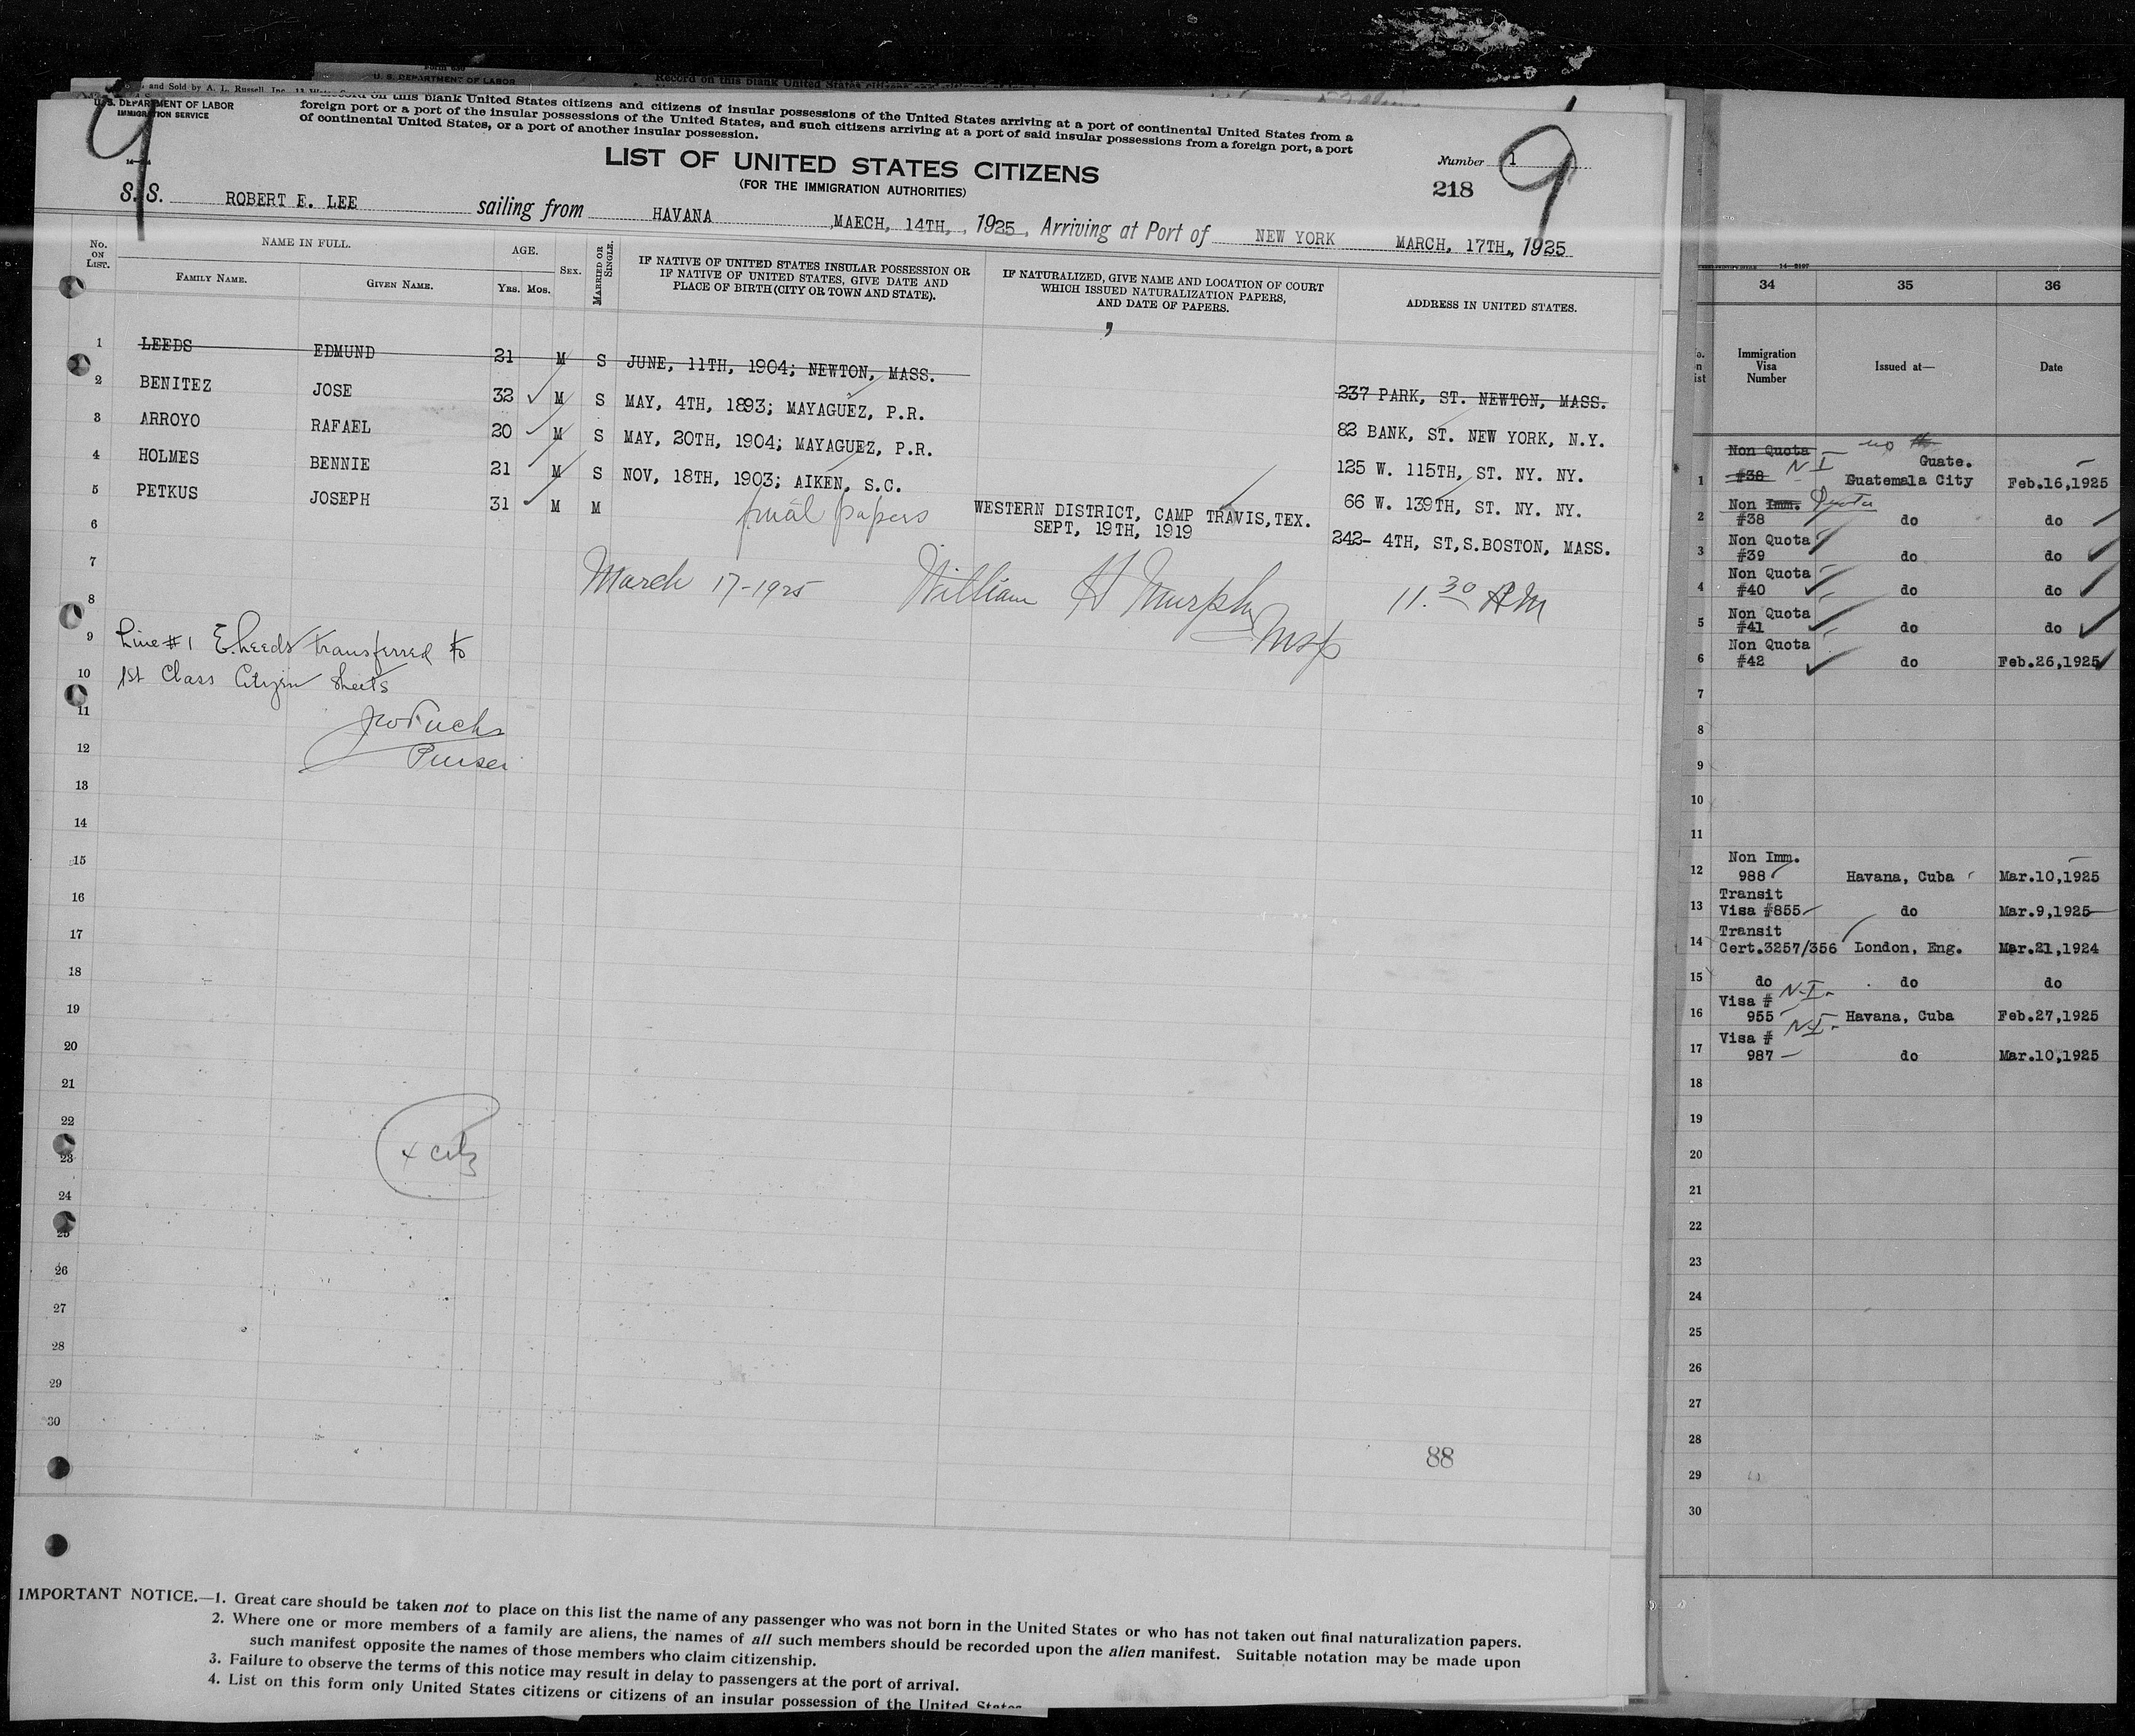 Form 630
U. S. DEPARTMENT OF LABOR
Record on this blank United States
and Sold by A. L. Russell, Inc.,
U. S. DEPARTMENT OF LABOR
IMMIGRATION SERVICE
on this blank United States citizens and citizens of insular possessions of the United States arriving at a port of continental United States from a
foreign port or a port of the insular possessions of the United States, and such citizens arriving at a port of said insular possessions from a foreign port, a port
of continental United States, or a port of another insular possession.
9
9
LIST OF UNITED STATES CITIZENS
(FOR THE IMMIGRATION AUTHORITIES)
Number 1
218
S. S. ROBERT E. LEE sailing from HAVANA ,MAECH, 14TH, , 1925, Arriving at Port of NEW YORK MARCH, 17TH,, 1925
No. ON LIST. NAME IN FULL. AGE. SEX. MARRIED OR SINGLE. IF NATIVE OF UNITED STATES INSULAR POSSESSION OR
IF NATIVE OF UNITED STATES, GIVE DATE AND
PLACE OF BIRTH (CITY OR TOWN AND STATE).
IF NATURALIZED, GIVE NAME AND LOCATION OF COURT
WHICH ISSUED NATURALIZATION PAPERS,
AND DATE OF PAPERS.
ADDRESS IN UNITED STATES.
FAMILY NAME. GIVEN NAME. YRS. MOS.
1 LEEDS EDMUND 21 M S JUNE, 11TH, 1904; NEWTON, MASS. 237 PARK, ST. NEWTON, MASS.
2 BENITEZ JOSE 32 M S MAY, 4TH, 1893; MAYAGUEZ, P.R. 82 BANK, ST. NEW YORK, N.Y.
3 ARROYO RAFAEL 20 M S MAY, 20TH, 1904; MAYAGUEZ, P.R. 125 W. 115TH, ST. NY. NY.
4 HOLMES BENNIE 21 M S NOV, 18TH, 1903; AIKEN, S.C. 66 W. 139TH, ST. NY. NY.
5 PETKUS JOSEPH 31 M M final papers WESTERN DISTRICT, CAMP TRAVIS, TEX.
SEPT, 19TH, 1919
242- 4TH, ST,S.BOSTON, MASS.
6
7 March 17-1925 William H Murphy 11.30 AM
8
9 Line #1 E. Leeds transferred to
10 1st Class Citizen Sheets
11
12 Purser
13
14
15
16
17
18
19
20
21
22
23
24
25
26
27
28
29
30
88
IMPORTANT NOTICE.—1. Great care should be taken not to place on this list the name of any passenger who was not born in the United States or who has not taken out final naturalization papers.
2. Where one or more members of a family are aliens, the names of all such members should be recorded upon the alien manifest. Suitable notation may be made upon
such manifest opposite the names of those members who claim citizenship.
3. Failure to observe the terms of this notice may result in delay to passengers at the port of arrival.
4. List on this form only United States citizens or citizens of an insular possession of the United States
34 35 36
Immigration Visa Number Issued at— Date
1 Non Quota #38 N I no Guate. Guatemala City Feb.16,1925
2 Non Imm. Quota #38 do do
3 Non Quota #39 do do
4 Non Quota #40 do do
5 Non Quota #41 do do
6 Non Quota #42 do Feb.26,1925
7
8
9
10
11
12 Non Imm. 988 Havana, Cuba Mar.10,1925
13 Transit Visa #855 do Mar.9,1925
14 Transit Cert.3257/356 London, Eng. Mar.21,1924
15 do do do
16 Visa # 955 N-I- Havana, Cuba Feb.27,1925
17 Visa # 987 N-I- do Mar.10,1925
18
19
20
21
22
23
24
25
26
27
28
29
30